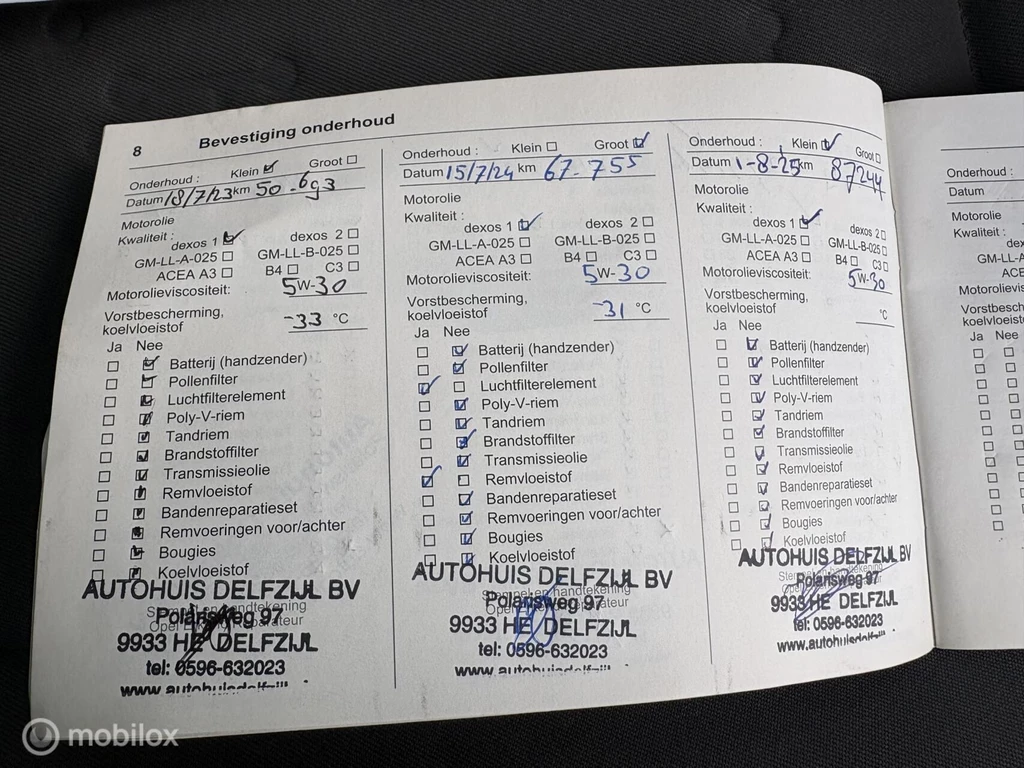 8 Bevestiging onderhoud
Onderhoud : Klein Groot
Datum 18/7/23 km 50.693
Motorolie
Kwaliteit :
dexos 1 dexos 2
GM-LL-A-025 GM-LL-B-025
ACEA A3 B4 C3
Motorolieviscositeit: 5W-30
Vorstbescherming,
koelvloeistof -33 °C
Ja Nee
Batterij (handzender)
Pollenfilter
Luchtfilterelement
Poly-V-riem
Tandriem
Brandstoffilter
Transmissieolie
Remvloeistof
Bandenreparatieset
Remvoeringen voor/achter
Bougies
Koelvloeistof
AUTOHUIS DELFZIJL BV
Stempel en handtekening
Polarisweg 97
Opel Service reparateur
9933 HE DELFZIJL
tel: 0596-632023
www.autohuisdelfzijl
Onderhoud : Klein Groot
Datum 15/7/24 km 67-755
Motorolie
Kwaliteit :
dexos 1 dexos 2
GM-LL-A-025 GM-LL-B-025
ACEA A3 B4 C3
Motorolieviscositeit: 5W-30
Vorstbescherming,
koelvloeistof -31 °C
Ja Nee
Batterij (handzender)
Pollenfilter
Luchtfilterelement
Poly-V-riem
Tandriem
Brandstoffilter
Transmissieolie
Remvloeistof
Bandenreparatieset
Remvoeringen voor/achter
Bougies
Koelvloeistof
AUTOHUIS DELFZIJL BV
Stempel en handtekening
Polarisweg 97
reparateur
9933 HE DELFZIJL
tel: 0596-632023
www.autohuisdelfzijl
Onderhoud : Klein Groot
Datum 1-8-25 km 87244
Motorolie
Kwaliteit :
dexos 1 dexos 2
GM-LL-A-025 GM-LL-B-025
ACEA A3 B4 C3
Motorolieviscositeit: 5W-30
Vorstbescherming,
koelvloeistof °C
Ja Nee
Batterij (handzender)
Pollenfilter
Luchtfilterelement
Poly-V-riem
Tandriem
Brandstoffilter
Transmissieolie
Remvloeistof
Bandenreparatieset
Remvoeringen voor/achter
Bougies
Koelvloeistof
AUTOHUIS DELFZIJL BV
Stempel en handtekening
Polarisweg 97
9933 HE DELFZIJL
tel: 0596-632023
www.autohuisdelfzijl
Onderhoud :
Datum
Motorolie
Kwaliteit :
dexo
GM-LL-A
ACEA
Motorolievis
Vorstbesche
koelvloeist
Ja Nee
mobilox